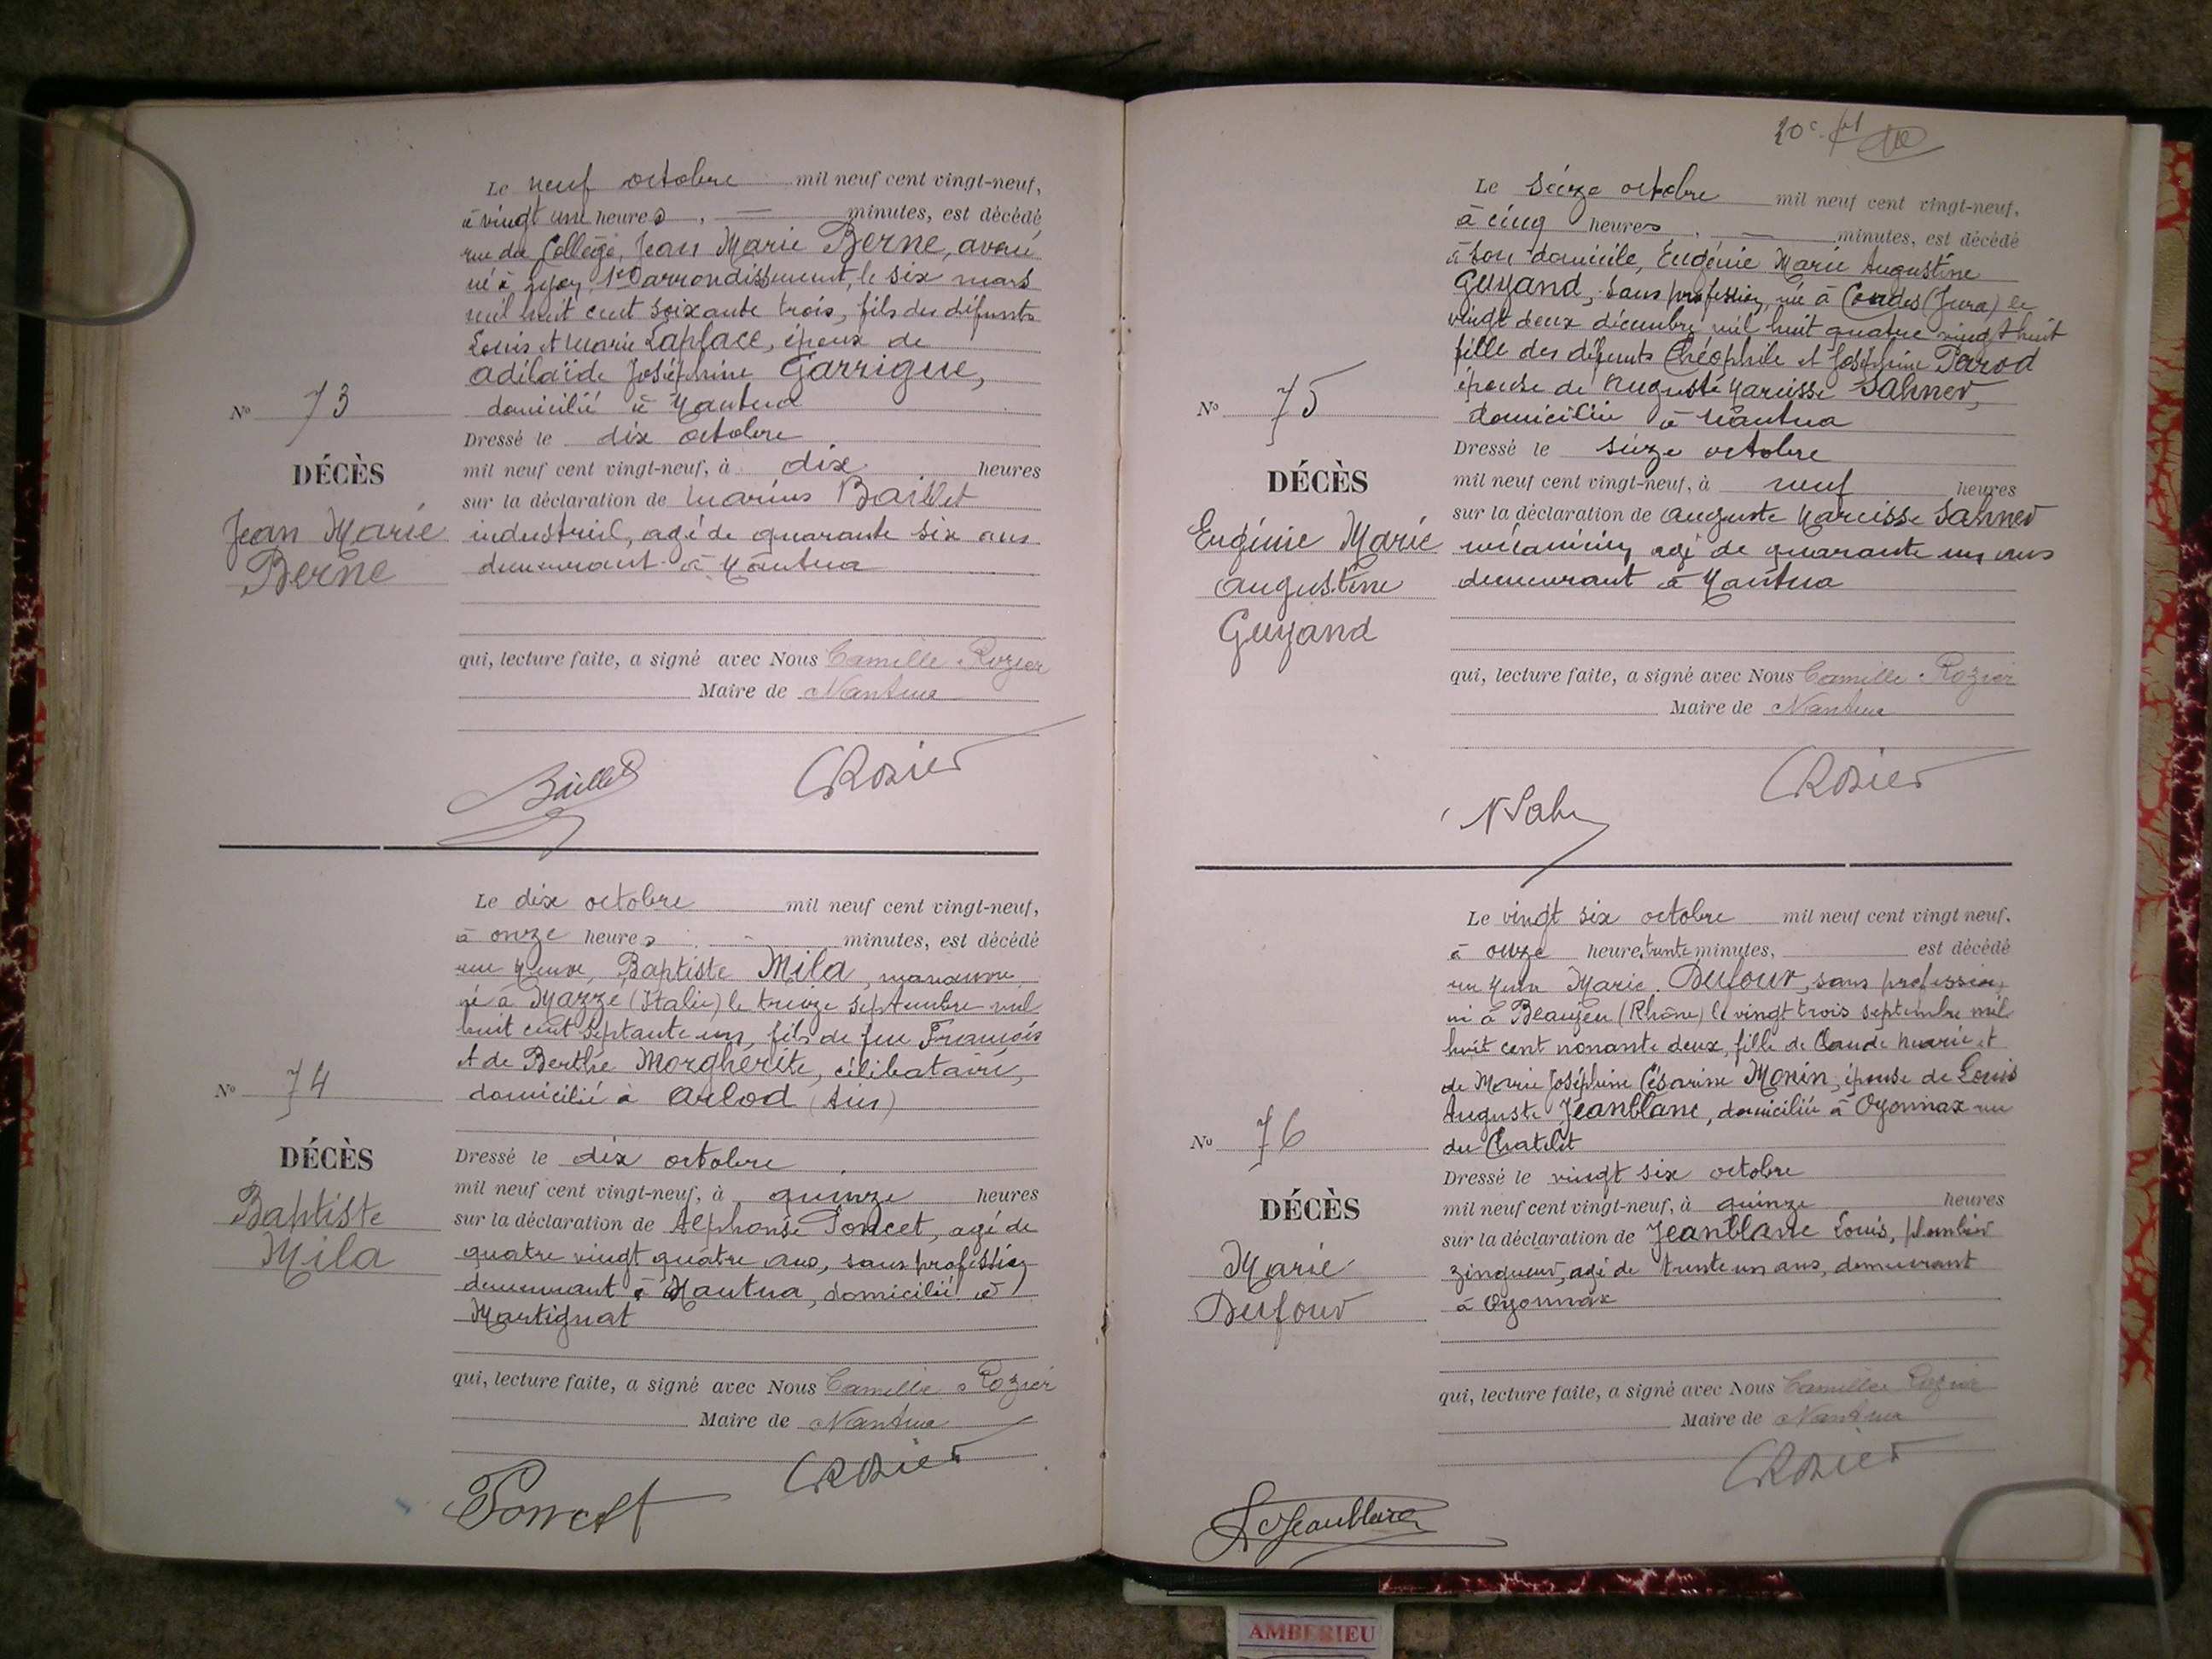 Le neuf octobre mil neuf cent vingt-neuf,
à vingt une heures, — minutes, est décédé
rue du Collège, Jean Marie Berne, avoué
né à Lyon 1er arrondissement, le six mars
mil huit cent soixante trois, fils des défunts
Louis et Marie Laplace, époux de
Adélaïde Joséphine Garrigue,
domicilié à Nantua
Dressé le dix octobre
mil neuf cent vingt-neuf, à dix heures
sur la déclaration de Marius Baillet
industriel, agé de quarante six ans
demeurant à Nantua
qui, lecture faite, a signé avec Nous Camille Rozier
Maire de Nantua
Baillet
CRozier
No 73
DÉCÈS
Jean Marie
Berne
Le dix octobre mil neuf cent vingt-neuf,
à onze heures - minutes, est décédé
rue Neuve, Baptiste Mila, manœuvre
né à Mazze (Italie) le treize septembre mil
huit cent septante un, fils de feu François
et de Berthe Morgherite, célibataire,
domicilié à Arlod (Ain)
Dressé le dix octobre
mil neuf cent vingt-neuf, à quinze heures
sur la déclaration de Alphonse Poncet, agé de
quatre vingt quatre ans, sans profession
demeurant à Nantua, domicilié à
Martignat
qui, lecture faite, a signé avec Nous Camille Rozier
Maire de Nantua
Poncet
CRozier
No 74
DÉCÈS
Baptiste
Mila
20e
Le seize octobre mil neuf cent vingt-neuf,
à cinq heures, — minutes, est décédé
à son domicile, Eugénie Marie Augustine
Guyand, sans profession, née à Condes (Jura) le
vingt deux décembre mil huit quatre vingt huit
fille des défunts Théophile et Joséphine Parod
épouse de Auguste Narcisse Sahner,
domiciliée à Nantua
Dressé le seize octobre
mil neuf cent vingt-neuf, à neuf heures
sur la déclaration de Auguste Narcisse Sahner
mécanicien, agé de quarante un ans
demeurant à Nantua
qui, lecture faite, a signé avec Nous Camille Rozier
Maire de Nantua
N Sahn
CRozier
No 75
DÉCÈS
Eugénie Marie
Augustine
Guyand
Le vingt six octobre mil neuf cent vingt neuf,
à onze heures trente minutes, est décédé
rue Neuve Marie Dufour, sans profession,
née à Beaujeu (Rhône) le vingt trois septembre mil
huit cent nonante deux, fille de Claude Marie et
de Marie Joséphine Césarine Monin, épouse de Louis
Auguste Jeanblanc, domiciliée à Oyonnax rue
du Chatelet
Dressé le vingt six octobre
mil neuf cent vingt-neuf, à quinze heures
sur la déclaration de Jeanblanc Louis, plombier
zingueur, agé de trente un ans, demeurant
à Oyonnax
qui, lecture faite, a signé avec Nous Camille Rozier
Maire de Nantua
CRozier
L Jeanblanc
No 76
DÉCÈS
Marie
Dufour
AMBERIEU